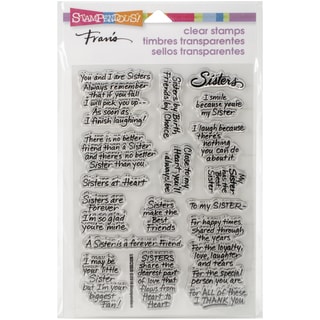 STAMPENDOUS!
Fran's
clear stamps
timbres transparentes
sellos transparentes
You and I are Sisters
Always remember
that if you fall
I will pick you up...
As soon as
I finish laughing!
There is no better
friend than a Sister
and there's no better
Sister than you
Sisters at Heart
Sisters are
Forever
I'm so glad
you're mine
A Sister is a forever Friend
I may be
your little
Sister
but I'm your
biggest
Fan!
Sisters by Birth
Friends by Choice
Close to my
Heart you'll
always be
Sisters
make the
Best
Friends
SISTERS
share the
dearest part
of love that
flows from
Heart to
Heart
Sisters
I smile
because you're
my Sister
I laugh because
there's
nothing
you can do
about it
My
Sister
To my SISTER~
For happy times
Shared through
the years
For the loyalty,
love, laughter
and tears
For the special
person you are
For ALL of these
I THANK YOU